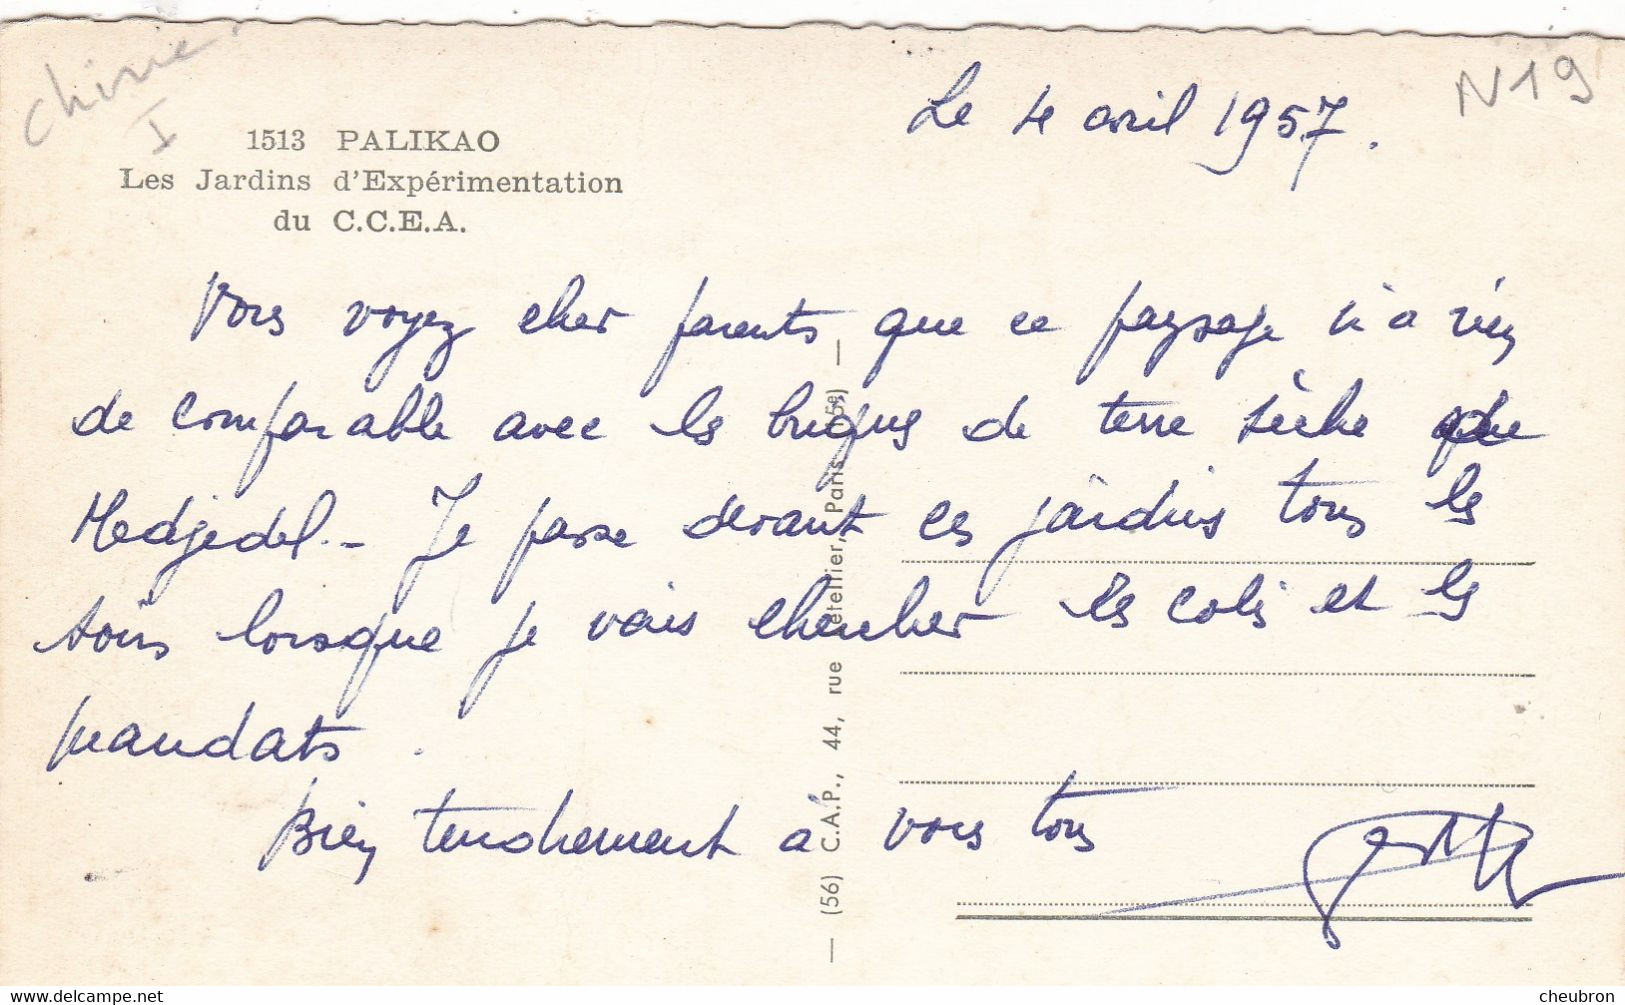 Chine
I
N19
1513 PALIKAO
Les Jardins d'Expérimentation
du C.C.E.A.
Le 4 avril 1957.
Vous voyez cher parents que ce paysage n'a rien
de comparable avec les briques de terre sèche de
Medjedel. - Je passe devant ces jardins tous les
soirs lorsque je vais chercher les colis et les
mandats.
Bien tendrement à vous tous
— (56) C.A.P., 44, rue Letellier, Paris (15e) —
cheubron - https://www.delcampe.net